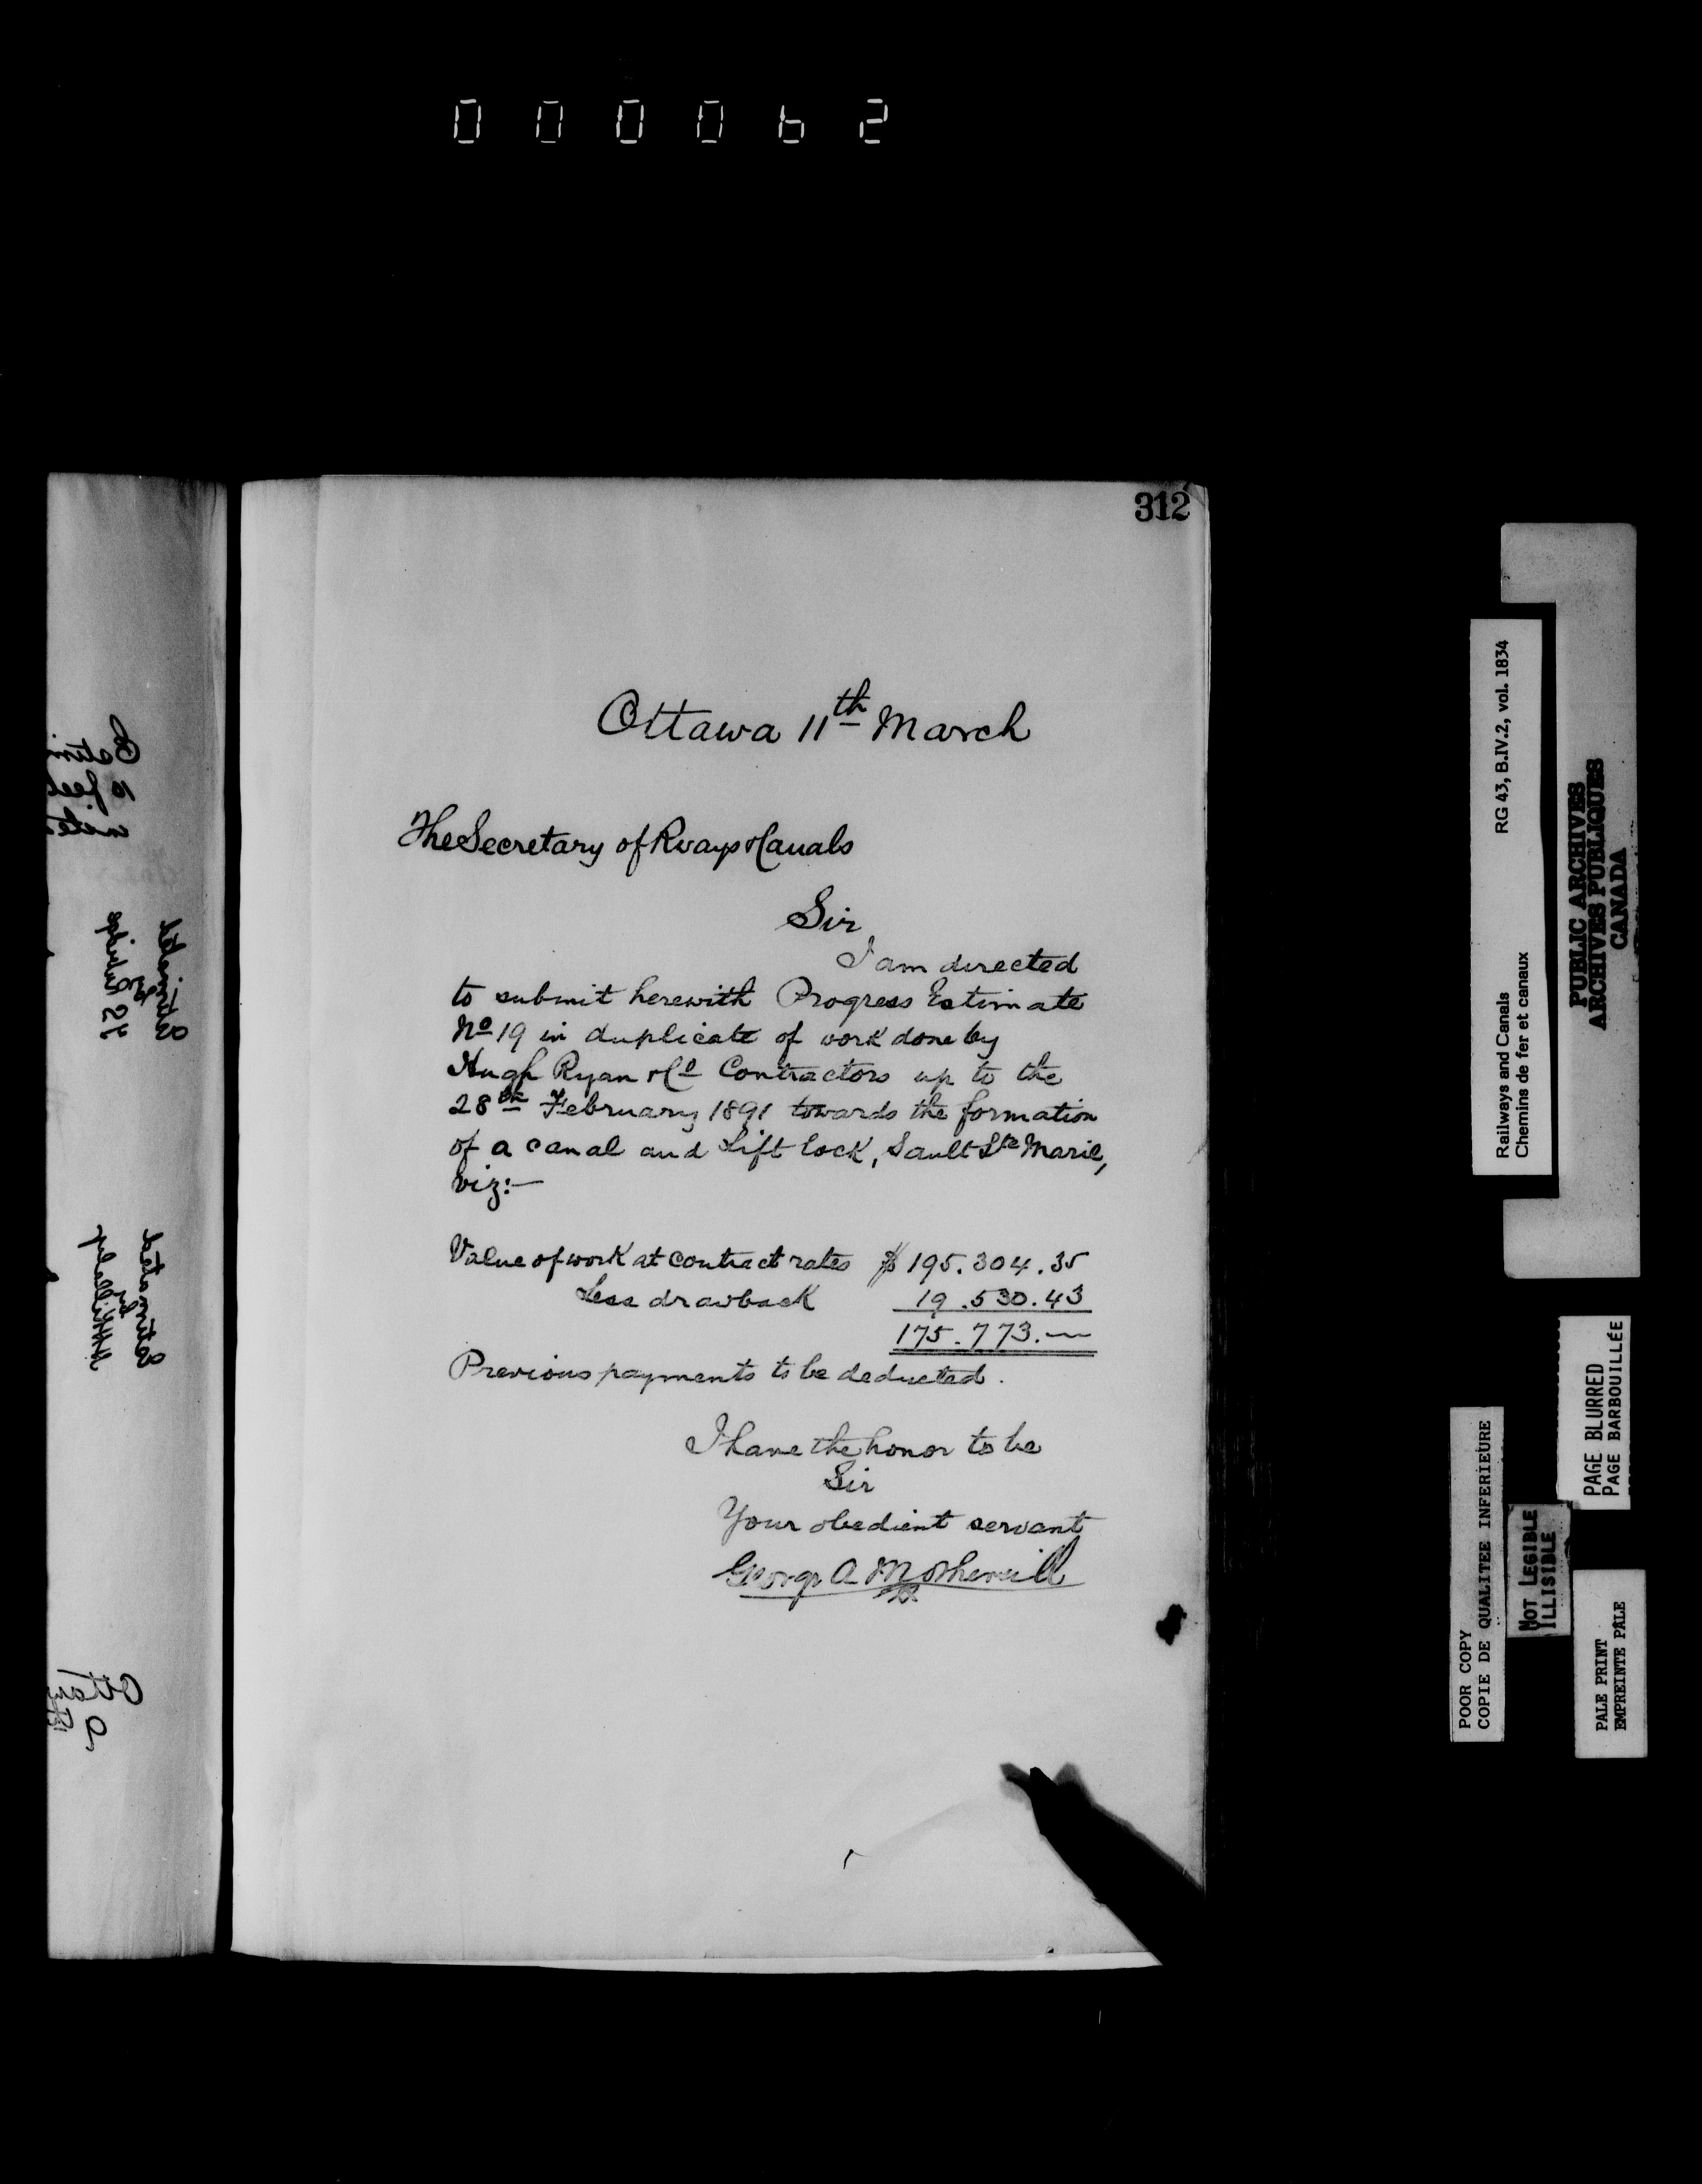 000062
312
Ottawa 11th March
The Secretary of Rways & Canals
Sir
I am directed
to submit herewith Progress Estimate
No 19 in duplicate of work done by
Hugh Ryan & Co Contractors up to the
28th February 1891 towards the formation
of a canal and Lift lock, Sault Ste Marie,
viz:—
Value of work at contract rates $195.304.35
Less drawback 19.530.43
175.773.—
Previous payments to be deducted.
I have the honor to be
Sir
Your obedient servant
George A Mothersill
Railways and Canals RG 43, B.IV.2, vol. 1834
Chemins de fer et canaux
PUBLIC ARCHIVES
ARCHIVES PUBLIQUES
CANADA
PAGE BLURRED
PAGE BARBOUILLÉE
POOR COPY
COPIE DE QUALITEE INFERIEURE
NOT LEGIBLE
ILLISIBLE
PALE PRINT
EMPREINTE PÂLE